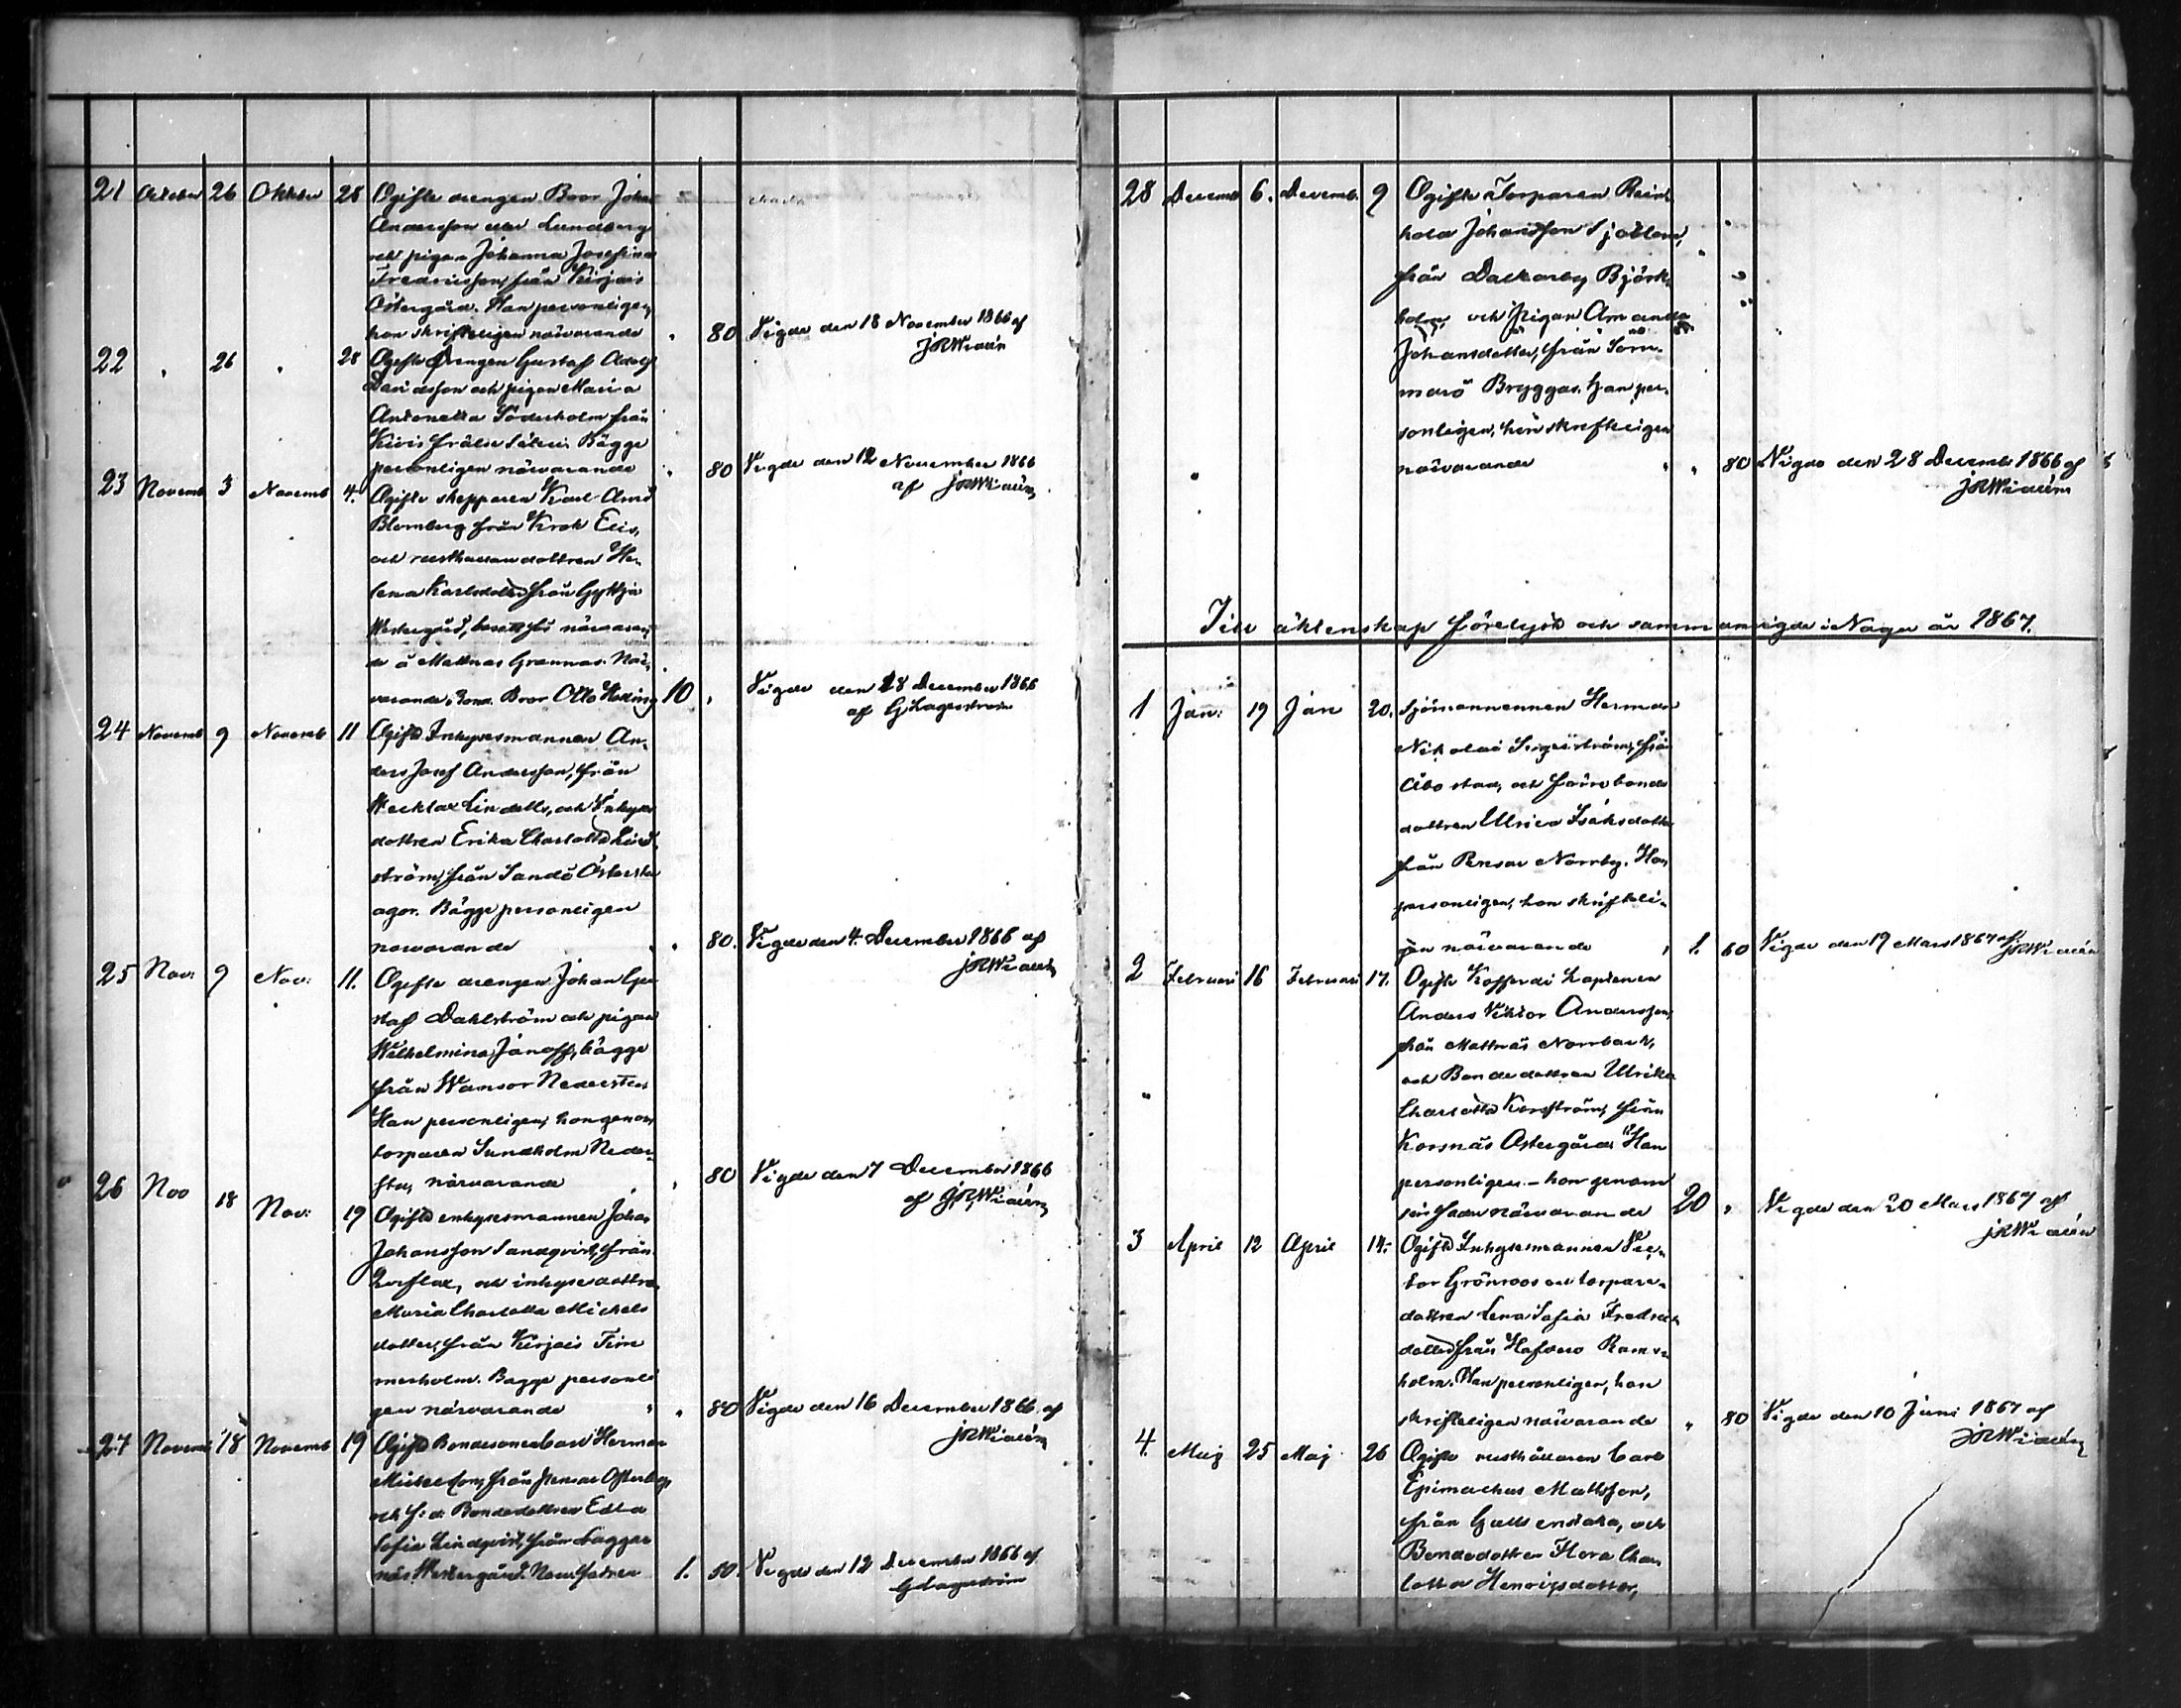 21 October 26 October 28 Ogifte drengen Boor Johan
Andersson eller Lundberg
och pigan Johanna Josefina
Fredricsson, från Kirjais
Östergård. Han personligen,
hon skrifteligen närvarande " 80 Vigde den 18 November 1866 af
JRWidén
22 " 26 " 28 Ogifte Drengen Gustaf Adolf
Davidsson och pigan Maria
Antonetta Söderholm från
Kivis frälse säteri. Bägge
personligen närvarande " 80 Vigde den 12 November 1866
af JRWidén
23 Novemb 3 Novemb 4. Ogifte skepparen Karl
Blomberg från Krok
och rusthållaredottren He-
lena Karlsdotter från Gyttja
Westergård, närvaran-
de å Mattnäs Grannas. När-
varande, Boor Otto 10 " Vigde den 28 December 1866
af GLagerström
24 Novemb 9 Novemb 11 Ogifte Inhysesmannen An-
ders Josef Andersson, från
Lindells, och Inhyses
dottren Erika Charlotta Lind-
ström, från Sandö
ägor. Bägge personligen
närvarande " 80. Vigde den 4. December 1866 af
JRWidén
25 Nov: 9 Nov: 11. Ogifte drengen Johan Gu-
staf Dahlström och pigan
Wilhelmina Janoff, bägge
från Wansor Nedersten
Han personligen, hon genom
torparen Sundholm Neder-
sten, närvarande " 80 Vigde den 7 December 1866
af JRWidén
26 Nov 18 Nov: 19 Ogifte inhysesmannen Johan
Johansson Sandqvist, från
och inhysesdottren
Maria Charlotta Michels
dotter, från Kirjais Tim
merholm. Bägge personli
gen närvarande " " 80 Vigde den 16 December 1866 af
JRWidén
27 Novemb 18 Novemb 19 Ogifte Bondesonen Herman
Mickelson, från Pensar Österby
och f. d. Bondedottren Edla
Sofia Lindqvist, från
näs Westergård. 1. 50. Vigde den 12 December 1866 af
GLagerström
28 Decemb 6. Decemb. 9 Ogifte Torparen Rein
hold Johansson Sjöblom,
från Dalkarby Björk-
holm, och Pigan Amanda
Johansdotter, från Som-
marö Bryggas. Han per-
sonligen, hon skrifteligen
närvarande " " 80 Vigde den 28 Decemb 1866 af
JRWidén
Till äktenskap förelyste och sammanvigde i Nagu år 1867.
1 Jan: 19 Jan 20. Sjömannennen Herman
Nikolai från
Åbo stad, och förre bonde
dottren Ulrica Isaksdotter
från Pensar Norrby. Han
personligen, hon skriftli-
gen närvarande " 1. 60 Vigde den 19 Mars 1867 af
JRWidén
2 Februari 16 Februari 17. Ogifte Kofferdi Kaptenen
Anders Viktor Andersson,
från Mattnäs Norrback,
och Bondedottren Ulrika
Charlotta Korsström, från
Korsnäs Östergård. Han
personligen - hon genom
sin fader närvarande 20 " Vigde den 20 Mars 1867 af
JRWidén
3 April 12 April 14. Ogifte Inhysesmannen Vic-
tor Grönroos och torpare-
dottren Lena Sofia Fredrics
dotter från Hafverö Rams-
holm. Han personligen, hon
skrifteligen närvarande " 80 Vigde den 10 Juni 1867 af
JRWidén
4. Maj 25 Maj 26 Ogifte rusthållaren Carl
Epimachus Mattsson,
från och
Bondedottren Flora Char
lotta Henricsdotter,